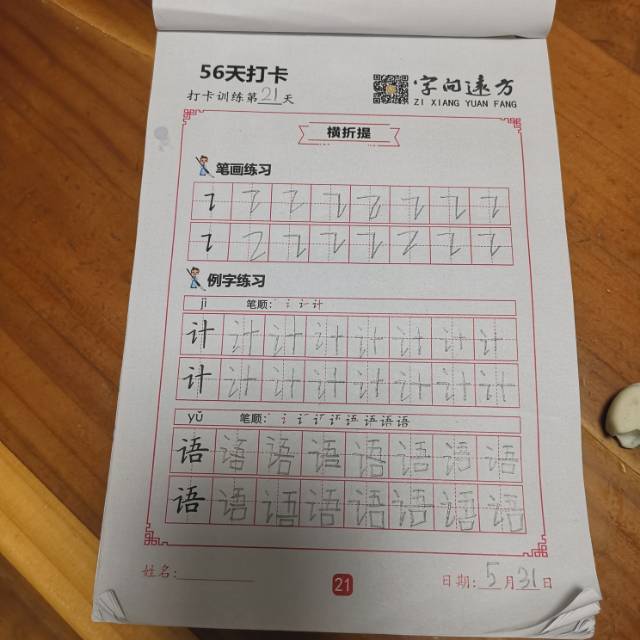 56天打卡
字向远方
打卡训练第21天
ZI XIANG YUAN FANG
横折提
笔画练习
例字练习
jì 笔顺: 丶 讠 计 计
计 计 计 计 计 计 计 计
计 计 计 计 计 计 计 计
yǔ 笔顺:
语 语 语 语 语 语 语 语
语 语 语 语 语 语 语 语
姓名:
21
日期: 5月31日